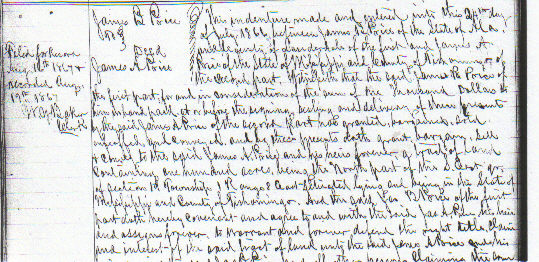 James B. Price
To } Deed
James A Price
Filed for Record
Aug. 12th 1867 &
recorded Aug.
19th 1867
Clerk
This indenture made and entered into this 24th day
of July 1866 between James B Price of the State of Ala.
and County of of the first part and James A
Price of the State of Mississippi and County of Tishomingo of
the second part. Witnesseth that the said James B Price of
the first part for and in consideration of the sum of One Thousand Dollars to
him in hand paid at or before the ensealing and delivery of these presents
by the said James A Price of the second part has granted, bargained, sold
and conveyed and by these presents doth grant, bargain, sell
& convey to the said James A Price and his heirs forever a tract of land
containing one hundred acres, being the North part of the S. East qr.
of Section 18 Township 1 Range East situated lying and being in the State of
Mississippi and County of Tishomingo. And the said Jas B Price of the first
part doth hereby covenant and agree to and with the said Jas A Price his heirs
and assigns forever to warrant and forever defend the right title, claim
and interest of the said tract of land unto the said James A Price and his
claiming the same